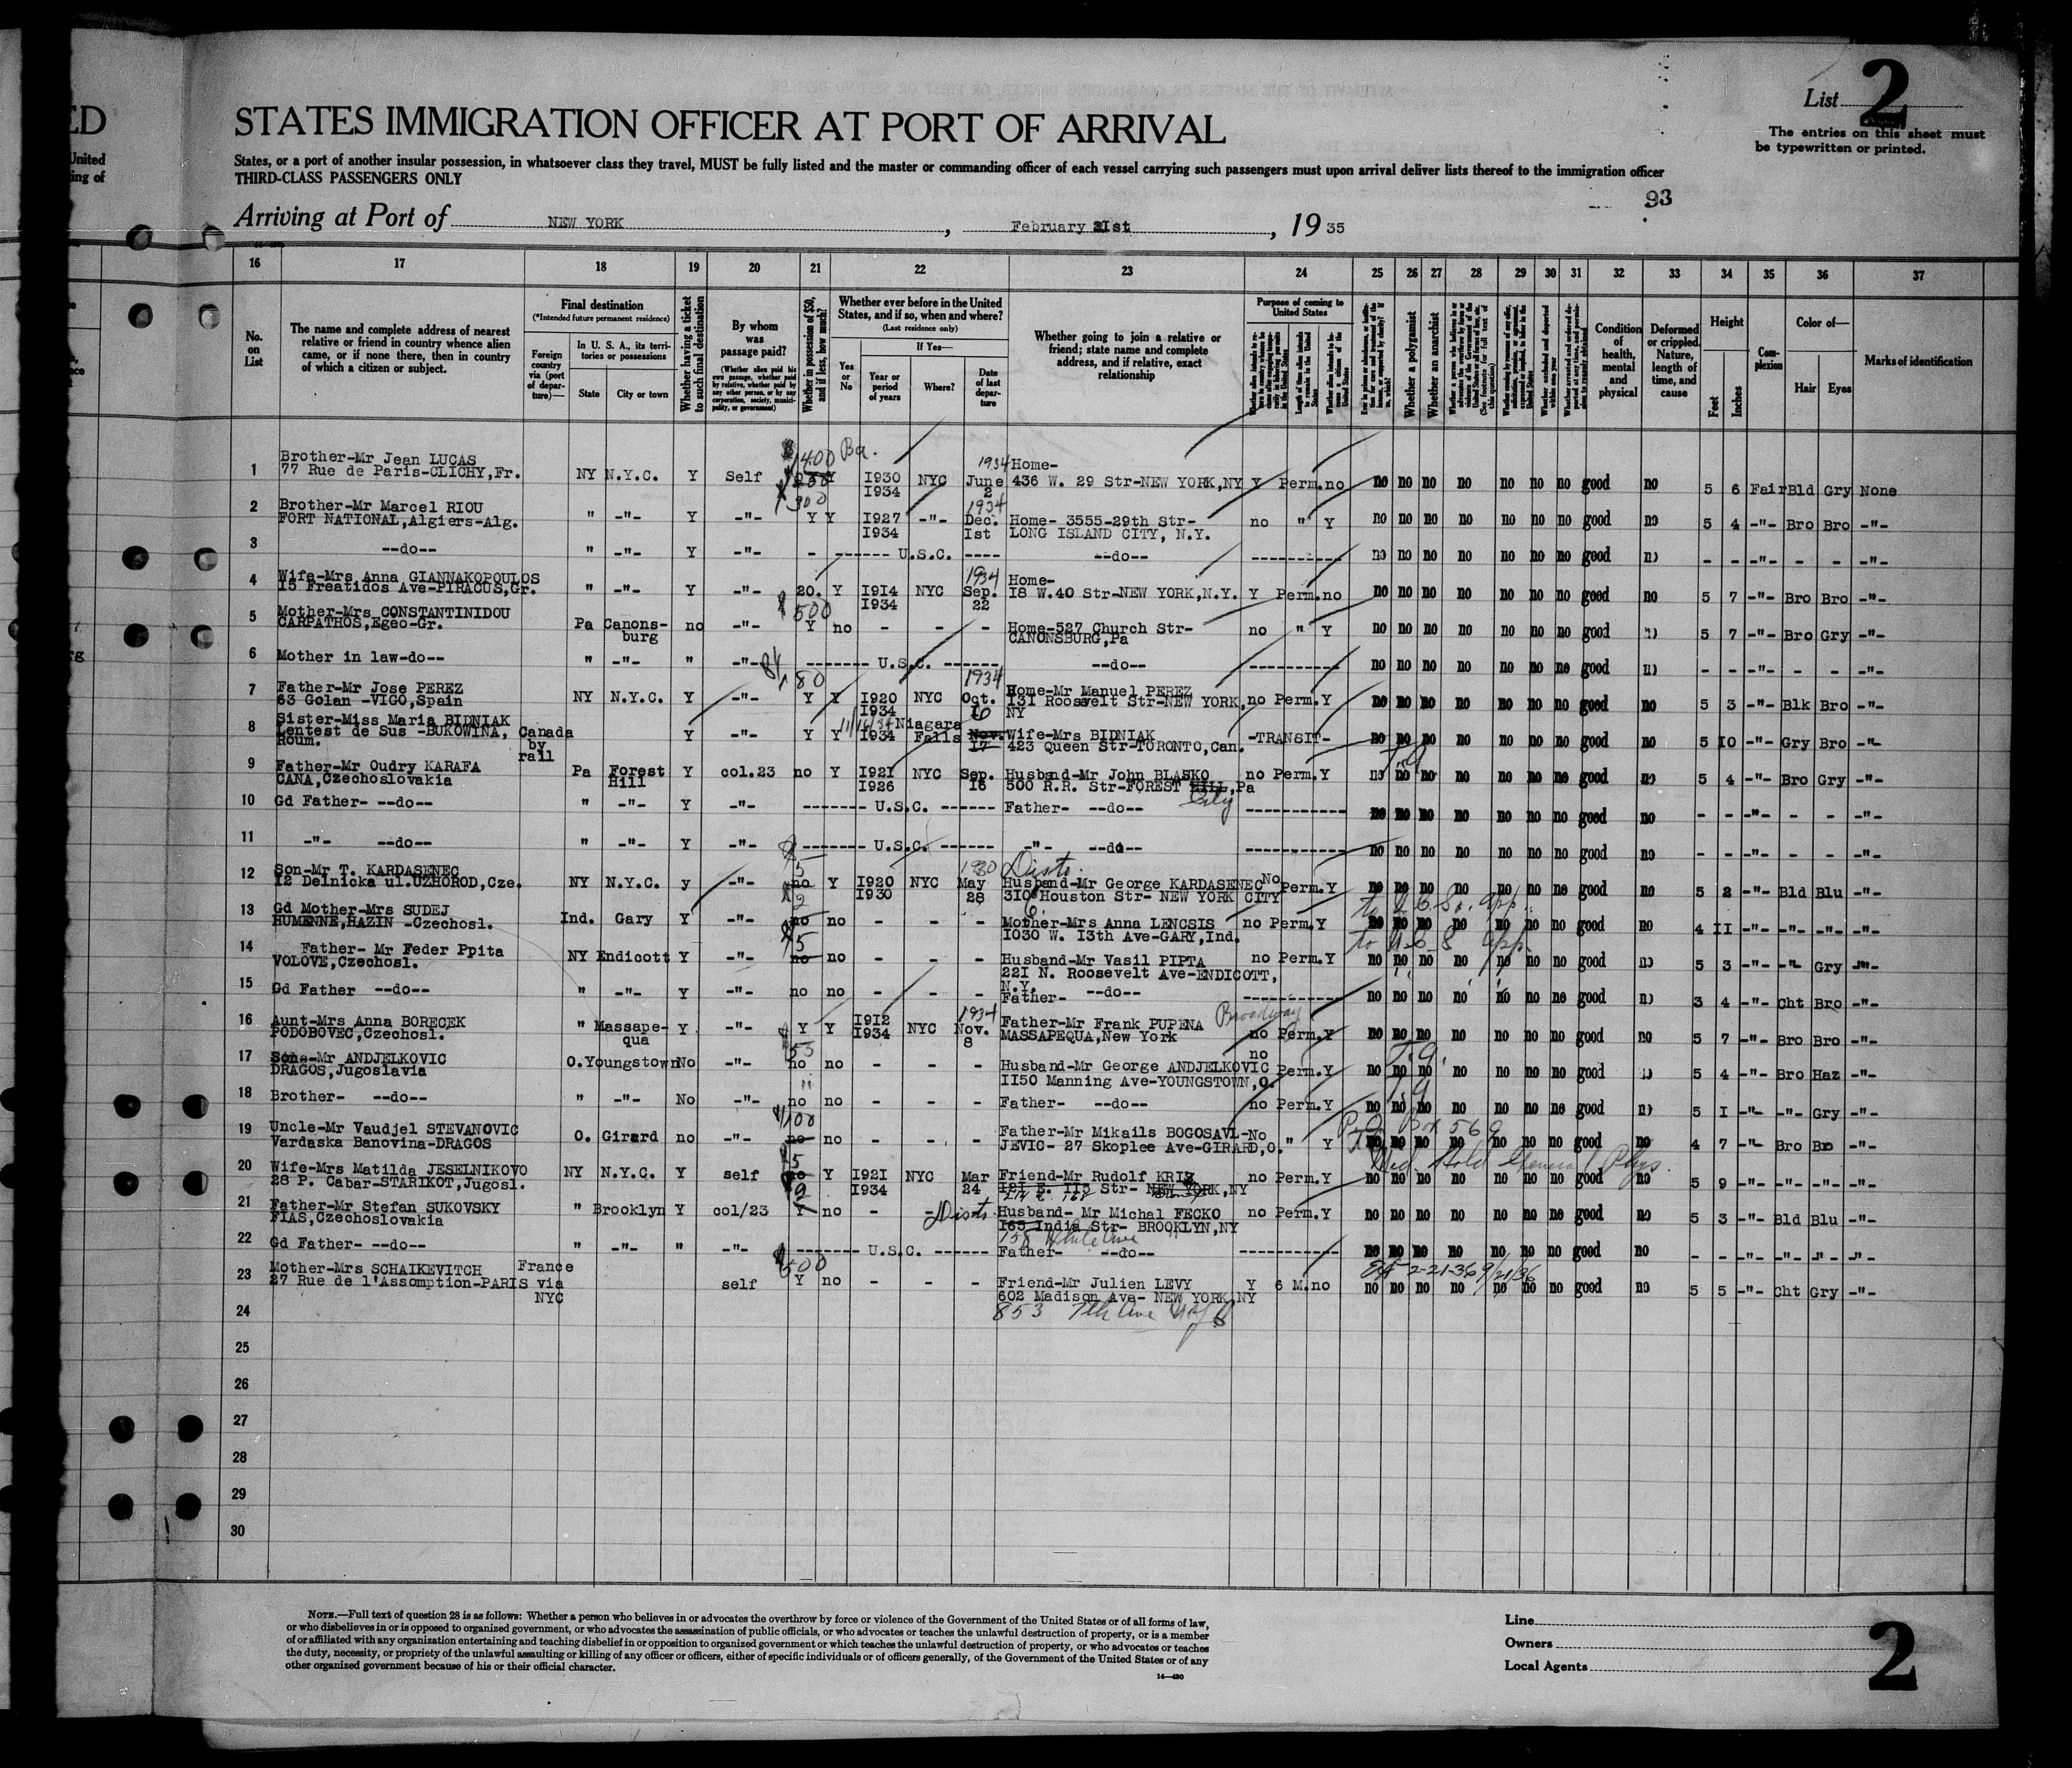 List 2
The entries on this sheet must
be typewritten or printed.
ED
STATES IMMIGRATION OFFICER AT PORT OF ARRIVAL
United
ing of
States, or a port of another insular possession, in whatsoever class they travel, MUST be fully listed and the master or commanding officer of each vessel carrying such passengers must upon arrival deliver lists thereof to the immigration officer
THIRD-CLASS PASSENGERS ONLY
93
Arriving at Port of NEW YORK, February 21st, 1935
16 17 18 19 20 21 22 23 24 25 26 27 28 29 30 31 32 33 34 35 36 37
No. on List
The name and complete address of nearest relative or friend in country whence alien came, or if none there, then in country of which a citizen or subject.
Final destination
(*Intended future permanent residence)
Foreign country via (port of departure)—
In U. S. A., its territories or possessions
State City or town
Whether having a ticket to such final destination
By whom was passage paid?
(Whether alien paid his own passage, whether paid by relative, whether paid by any other person, or by any corporation, society, municipality, or government)
Whether in possession of $50, and if less, how much?
Whether ever before in the United States, and if so, when and where?
(Last residence only)
Yes or No
If Yes—
Year or period of years Where? Date of last departure
Whether going to join a relative or friend; state name and complete address, and if relative, exact relationship
Purpose of coming to United States
Whether a polygamist
Whether an anarchist
Condition of health, mental and physical
Deformed or crippled. Nature, length of time, and cause
Height
Feet Inches
Complexion
Color of—
Hair Eyes
Marks of identification
1 Brother-Mr Jean LUCAS
77 Rue de Paris-CLICHY,Fr. NY N.Y.C. Y Self 400 Y I930 I934 NYC 1934 June 2 Home-
436 W. 29 Str-NEW YORK,NY Y Perm.no no no no no no no no good no 5 6 Fair Bld Gry None
2 Brother-Mr Marcel RIOU
FORT NATIONAL,Algiers-Alg. " -"- Y -"- 300 Y Y I927 I934 -"- 1934 Dec. Ist Home- 3555-29th Str-
LONG ISLAND CITY, N.Y. no " Y no no no no no no no good no 5 4 -"- Bro Bro -"-
3 --do-- " -"- Y -"- - ------ U.S.C. ---- --do-- ----------- no no no no no no no good no - - -"- - - -"-
4 Wife-Mrs Anna GIANNAKOPOULOS
I5 Freatidos Ave-PIRACUS,Gr. " -"- Y -"- 20. Y I9I4 I934 NYC 1934 Sep. 22 Home-
I8 W.40 Str-NEW YORK,N.Y. Y Perm.no no no no no no no no good no 5 7 -"- Bro Bro -"-
5 Mother-Mrs CONSTANTINIDOU
CARPATHOS,Egeo-Gr. Pa Canonsburg no -"- $500 Y no - - - Home-527 Church Str-
CANONSBURG,Pa no " Y no no no no no no no good no 5 7 -"- Bro Gry -"-
6 Mother in law-do-- " -"- " -"- ------- U.S.C. ------ --do-- ----------- no no no no no no no good no - - -"- - - -"-
7 Father-Mr Jose PEREZ
63 Golan -VIGO,Spain NY N.Y.C. Y -"- 80 Y Y I920 I934 NYC 1934 Oct. 16 Home-Mr Manuel PEREZ
I3I Roosvelt Str-NEW YORK,
NY no Perm.Y no no no no no no no good no 5 3 -"- Blk Bro -"-
8 Sister-Miss Maria BIDNIAK
Lentest de Sus -BUKOWINA,
Roum. Canada by rail Y -"- Y Y 11/16/34 I934 Niagara Falls Nov. I7 Wife-Mrs BIDNIAK
423 Queen Str-TORONTO,Can. -TRANSIT- no no no no no no no good no 5 IO -"- Gry Bro -"-
9 Father-Mr Oudry KARAFA
CANA,Czechoslovakia Pa Forest Hill Y col.23 no Y I92I I926 NYC Sep. I6 Husband-Mr John BLASKO
500 R.R. Str-FOREST HILL,Pa City no Perm.Y no no no no no no no good no 5 4 -"- Bro Gry -"-
10 Gd Father- --do-- " -"- Y -"- ------- U.S.C. ------ Father- --do-- ----------- no no no no no no no good no - - -"- - - -"-
11 -"- --do-- " -"- Y -"- ------- U.S.C. ------ -"- --do- ----------- no no no no no no no good no - - -"- - - -"-
12 Son-Mr T. KARDASENEC
I2 Delnicka ul.UZHOROD,Cze. NY N.Y.C. y -"- $5 no Y I920 I930 NYC 1930 May 28 Husband-Mr George KARDASENEC
310 Houston Str- NEW YORK CITY No Perm.Y no no no no no no no good no 5 2 -"- Bld Blu -"-
13 Gd Mother-Mrs SUDEJ
HUMENNE,HAZIN -Czechosl. Ind. Gary Y -"- 2 no no - - - Mother-Mrs Anna LENCSIS
I030 W. I3th Ave-GARY,Ind. no Perm.Y no no no no no no no good no 4 II -"- -"- -"- -"-
14 Father- Mr Feder Ppita
VOLOVE,Czechosl. NY Endicott Y -"- $5 no no - - - Husband-Mr Vasil PIPTA
22I N. Roosevelt Ave-ENDICOTT,
N.Y. no Perm.Y no no no no no no no good no 5 3 -"- -"- Gry -"-
15 Gd Father --do-- " -"- Y -"- no no - - - Father- --do-- ----------- no no no no no no no good no 3 4 -"- Cht Bro -"-
16 Aunt-Mrs Anna BORECEK
PODOBOVEC,Czechosl. " Massapequa Y -"- Y Y I9I2 I934 NYC 1934 Nov. 8 Father-Mr Frank PUPENA Broadway
MASSAPEQUA,New York no Perm.Y no no no no no no no good no 5 7 -"- Bro Bro -"-
17 Sons-Mr ANDJELKOVIC
DRAGOS,Jugoslavia O.Youngstown No -"- no no - - - Husband-Mr George ANDJELKOVIC
II50 Manning Ave-YOUNGSTOWN,O. no Perm.Y no no no no no no no good no 5 4 -"- Bro Haz -"-
18 Brother- --do-- " -"- No -"- no no - - - Father- --do-- no Perm.Y no no no no no no no good no 5 I -"- -"- Gry -"-
19 Uncle-Mr Vaudjel STEVANOVIC
Vardaska Banovina-DRAGOS O. Girard no -"- $100 no no - - - Father-Mr Mikails BOGOSAVL-
JEVIC- 27 Skoplee Ave-GIRARD,O. No " Y P.O. Box 569 no no no no no no no good no 4 7 -"- Bro Bro -"-
20 Wife-Mrs Matilda JESELNIKOVO
28 P. Cabar-STARIKOT,Jugosl. NY N.Y.C. Y self $5 no Y I92I I934 NYC Mar 24 Friend-Mr Rudolf KRIZ
Str- NEW YORK,NY no Perm.Y Med. Hold no no no no no no no good no 5 9 -"- -"- -"- -"-
21 Father-Mr Stefan SUKOVSKY
FIAS,Czechoslovakia " Brooklyn Y col/23 Y no - - Husband- Mr Michal FECKO
I65 India Str- BROOKLYN,NY no Perm.Y no no no no no no no good no 5 3 -"- Bld Blu -"-
22 Gd Father- --do-- " -"- " -"- ------- U.S.C. ------ Father- --do-- ----------- no no no no no no no good no - - -"- -"- -"- -"-
23 Mother-Mrs SCHAIKEVITCH
27 Rue de l'Assomption-PARIS France via NYC self $500 Y no - - - Friend-Mr Julien LEVY
602 Madison Ave- NEW YORK,NY Y 6 M.no 2-21-36 9/21/36 no no no no no no no good no 5 5 -"- Cht Gry -"-
853 7th Ave
24
25
26
27
28
29
30
NOTE.—Full text of question 28 is as follows: Whether a person who believes in or advocates the overthrow by force or violence of the Government of the United States or of all forms of law,
or who disbelieves in or is opposed to organized government, or who advocates the assassination of public officials, or who advocates or teaches the unlawful destruction of property, or is a member
of or affiliated with any organization entertaining and teaching disbelief in or opposition to organized government or which teaches the unlawful destruction of property, or who advocates or teaches
the duty, necessity, or propriety of the unlawful assaulting or killing of any officer or officers, either of specific individuals or of officers generally, of the Government of the United States or of any
other organized government because of his or their official character.
14—430
Line
Owners
Local Agents
2